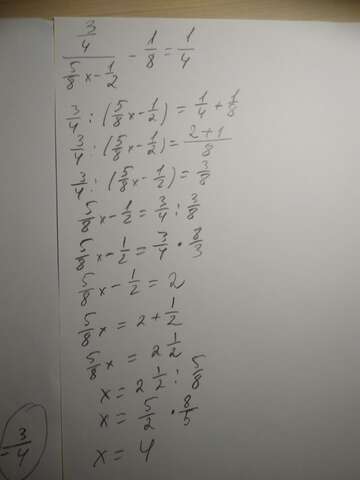 (3/4)/(5/8x - 1/2) - 1/8 = 1/4
3/4 : (5/8x - 1/2) = 1/4 + 1/8
3/4 : (5/8x - 1/2) = (2+1)/8
3/4 : (5/8x - 1/2) = 3/8
5/8x - 1/2 = 3/4 : 3/8
5/8x - 1/2 = 3/4 · 8/3
5/8x - 1/2 = 2
5/8x = 2 + 1/2
5/8x = 2 1/2
x = 2 1/2 : 5/8
x = 5/2 · 8/5
x = 4
= 3/4